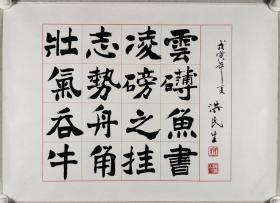 壯志凌雲
氣勢磅礡
吞舟之魚
牛角挂書
戊寅年夏
洪民生